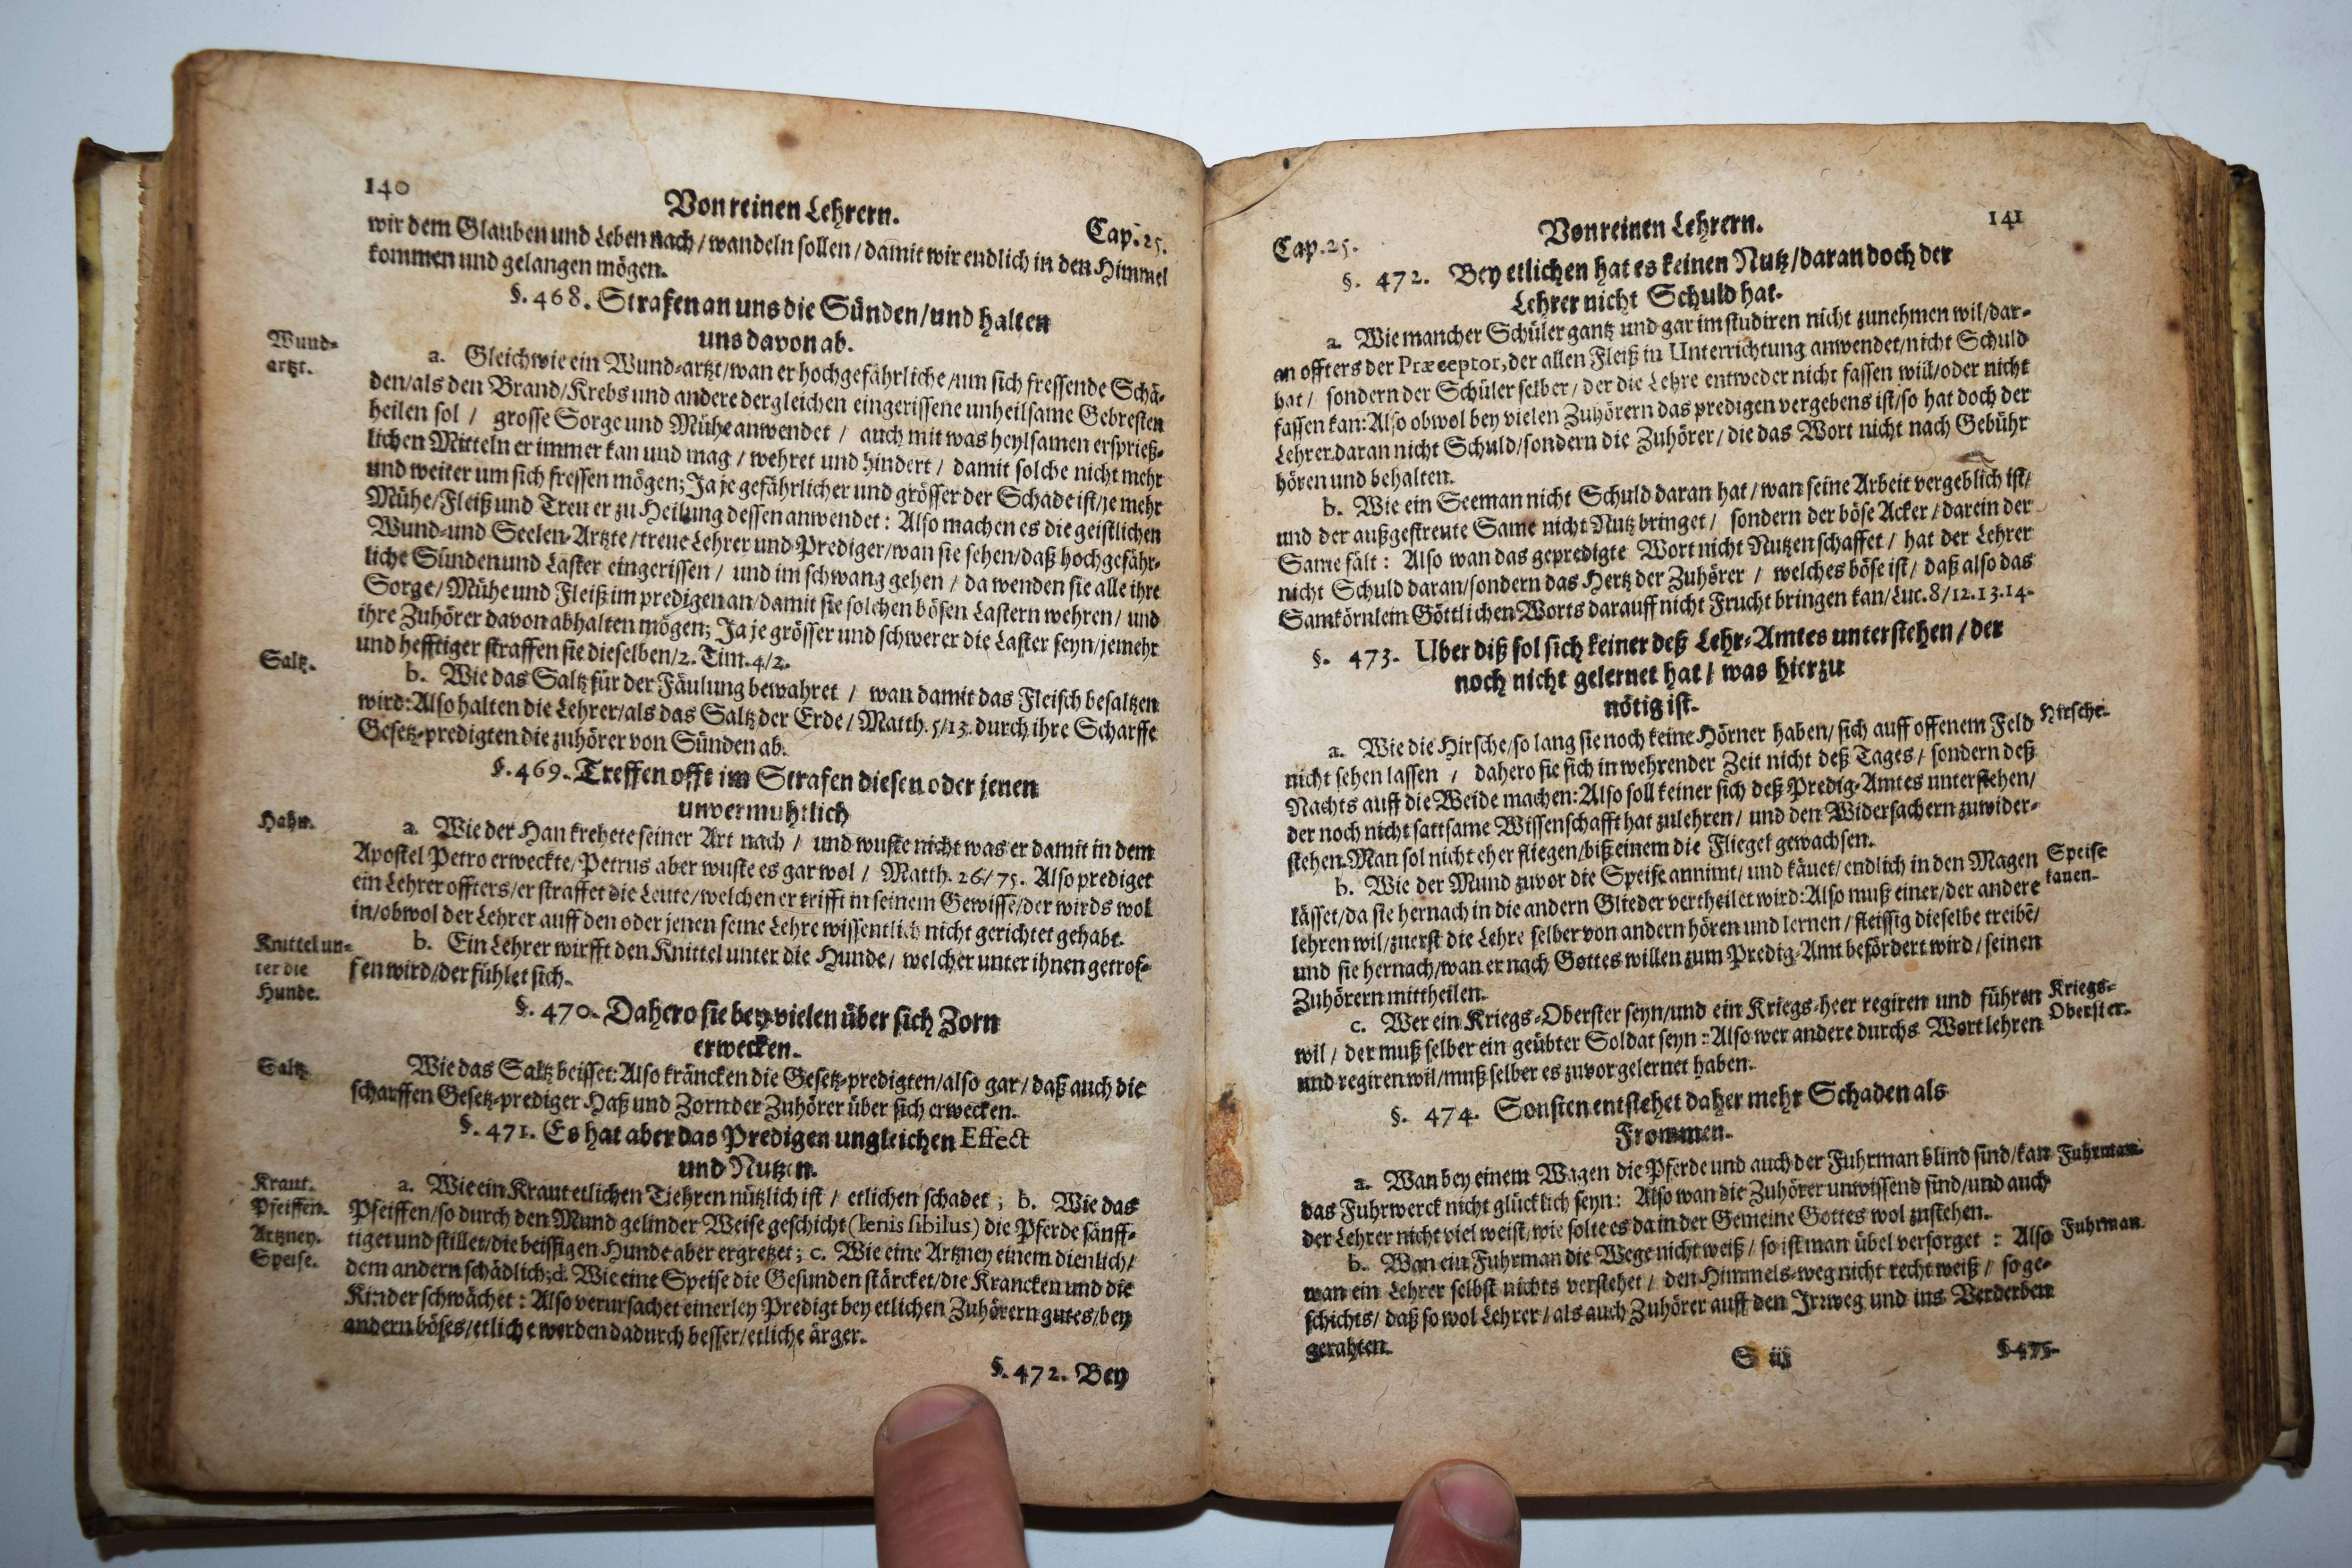 140
Von reinen Lehrern.
Cap. 25.
wir dem Glauben und Leben nach / wandeln sollen / damit wir endlich in den Himmel
kommen und gelangen mögen.
§. 468. Strafen an uns die Sünden / und halten
uns davon ab.
Wund-
artzt.
a. Gleich wie ein Wund-artzt / wan er hochgefährliche / um sich fressende Schä-
den / als den Brand / Krebs und andere dergleichen eingerissene unheilsame Gebresten
heilen sol / grosse Sorge und Mühe anwendet / auch mit was heylsamen ersprieß-
lichen Mitteln er immer kan und mag / wehret und hindert / damit solche nicht mehr
und weiter um sich fressen mögen; Ja je gefährlicher und grösser der Schade ist / je mehr
Mühe / Fleiß und Treu er zu Heilung dessen anwendet: Also machen es die geistlichen
Wund- und Seelen-Artzte / treue Lehrer und Prediger / wan sie sehen / daß hochgefähr-
liche Sünden und Laster eingerissen / und im schwang gehen / da wenden sie alle ihre
Sorge / Mühe und Fleiß im predigen an / damit sie solchen bösen Lastern wehren / und
ihre Zuhörer davon abhalten mögen; Ja je grösser und schwerer die Laster seyn / je mehr
und hefftiger straffen sie dieselben / 2. Tim. 4/2.
Saltz.
b. Wie das Saltz für der Fäulung bewahret / wan damit das Fleisch besaltzen
wird: Also halten die Lehrer / als das Saltz der Erde / Matth. 5/13. durch ihre Scharffe
Gesetz-predigten die zuhörer von Sünden ab.
§. 469. Treffen offt im Strafen diesen oder jenen
unvermuhtlich
Hahn.
a. Wie der Han krehete seiner Art nach / und wuste nicht was er damit in dem
Apostel Petro erweckte / Petrus aber wuste es gar wol / Matth. 26/75. Also prediget
ein Lehrer offters / er straffet die Leute / welchen er trifft in seinem Gewissē / der wirds wol
in / obwol der Lehrer auff den oder jenen seine Lehre wissentlich nicht gerichtet gehabt.
Knittel un-
ter die
Hunde.
b. Ein Lehrer wirfft den Knittel unter die Hunde / welcher unter ihnen getrof-
fen wird / der fühlet sich.
§. 470. Dahero sie bey vielen über sich Zorn
erwecken.
Saltz
Wie das Saltz beisset: Also kräncken die Gesetz-predigten / also gar / daß auch die
scharffen Gesetz-prediger Haß und Zorn der Zuhörer über sich erwecken.
§. 471. Es hat aber das Predigen ungleichen Effect
und Nutzen.
Kraut.
Pfeiffen.
Artzney.
Speise.
a. Wie ein Kraut etlichen Tiehren nützlich ist / etlichen schadet; b. Wie das
Pfeiffen / so durch den Mund gelinder Weise geschicht (lenis sibilus) die Pferde sänff-
tiget und stillet / die beissigen Hunde aber ergretzet; c. Wie eine Artzney einem dienlich /
dem andern schädlich; d. Wie eine Speise die Gesunden stärcket / die Krancken und die
Kinder schwächet: Also verursachet einerley Predigt bey etlichen Zuhörern gutes / bey
andern böses / etliche werden dadurch besser / etliche ärger.
§. 472. Bey
Cap. 25.
Von reinen Lehrern.
141
§. 472. Bey etlichen hat es keinen Nutz / daran doch der
Lehrer nicht Schuld hat.
a. Wie mancher Schüler gantz und gar im studiren nicht zunehmen wil / dar-
an offters der Præceptor, der allen Fleiß in Unterrichtung anwendet / nicht Schuld
hat / sondern der Schüler selber / der die Lehre entweder nicht fassen will / oder nicht
fassen kan: Also obwol bey vielen Zuhörern das predigen vergebens ist / so hat doch der
Lehrer daran nicht Schuld / sondern die Zuhörer / die das Wort nicht nach Gebühr
hören und behalten.
b. Wie ein Seeman nicht Schuld daran hat / wan seine Arbeit vergeblich ist /
und der außgestreute Same nicht Nutz bringet / sondern der böse Acker / darein der
Same fält: Also wan das gepredigte Wort nicht Nutzen schaffet / hat der Lehrer
nicht Schuld daran / sondern das Hertz der Zuhörer / welches böse ist / daß also das
Samkörnlein Göttlichen Worts darauff nicht Frucht bringen kan / Luc. 8/12.13.14.
§. 473. Uber diß sol sich keiner deß Lehr-Amtes unterstehen / der
noch nicht gelernet hat / was hierzu
nötig ist.
a. Wie die Hirsche / so lang sie noch keine Hörner haben / sich auff offenem Feld
Hirsche.
nicht sehen lassen / dahero sie sich in wehrender Zeit nicht deß Tages / sondern deß
Nachts auff die Weide machen: Also soll keiner sich deß Predig-Amtes unterstehen /
der noch nicht sattsame Wissenschafft hat zulehren / und den Widersachern zuwider-
stehen. Man sol nicht eher fliegen / biß einem die Fliegel gewachsen.
b. Wie der Mund zuvor die Speise annimt / und käuet / endlich in den Magen
Speise
kauen.
lässet / da sie hernach in die andern Glieder vertheilet wird: Also muß einer / der andere
lehren wil / zuerst die Lehre selber von andern hören und lernen / fleissig dieselbe treibē /
und sie hernach / wan er nach Gottes willen zum Predig-Amt befördert wird / seinen
Zuhörern mittheilen.
c. Wer ein Kriegs-Oberster seyn / und ein Kriegs-heer regiren und führen
Kriegs-
Oberster.
wil / der muß selber ein geübter Soldat seyn: Also wer andere durchs Wort lehren
und regiren wil / muß selber es zuvor gelernet haben.
§. 474. Sonsten entstehet daher mehr Schaden als
Frommen.
a. Wan bey einem Wagen die Pferde und auch der Fuhrman blind sind / kan
Fuhrman.
das Fuhrwerck nicht glücklich seyn: Also wan die Zuhörer unwissend sind / und auch
der Lehrer nicht viel weist / wie solte es da in der Gemeine Gottes wol zustehen.
b. Wan ein Fuhrman die Wege nicht weiß / so ist man übel versorget: Also
Fuhrman.
wan ein Lehrer selbst nichts verstehet / den Himmels-weg nicht recht weiß / so ge-
schichts / daß so wol Lehrer / als auch Zuhörer auff den Irrweg und ins Verderben
gerahten.
S iij
§. 475.